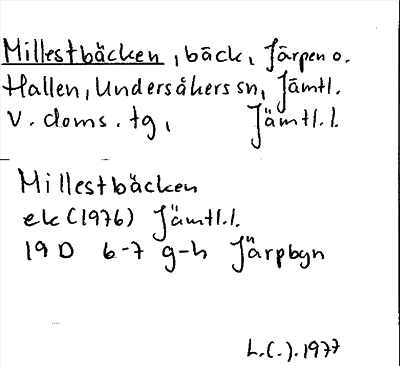 Millestbäcken, bäck, Järpen o.
Hallen, Undersåkers sn, Jämtl.
v. doms. tg, Jämtl. l.
Millestbäcken
ek (1976) Jämtl. l.
19 D 6-7 g-h Järpbyn
L.C.J. 1977